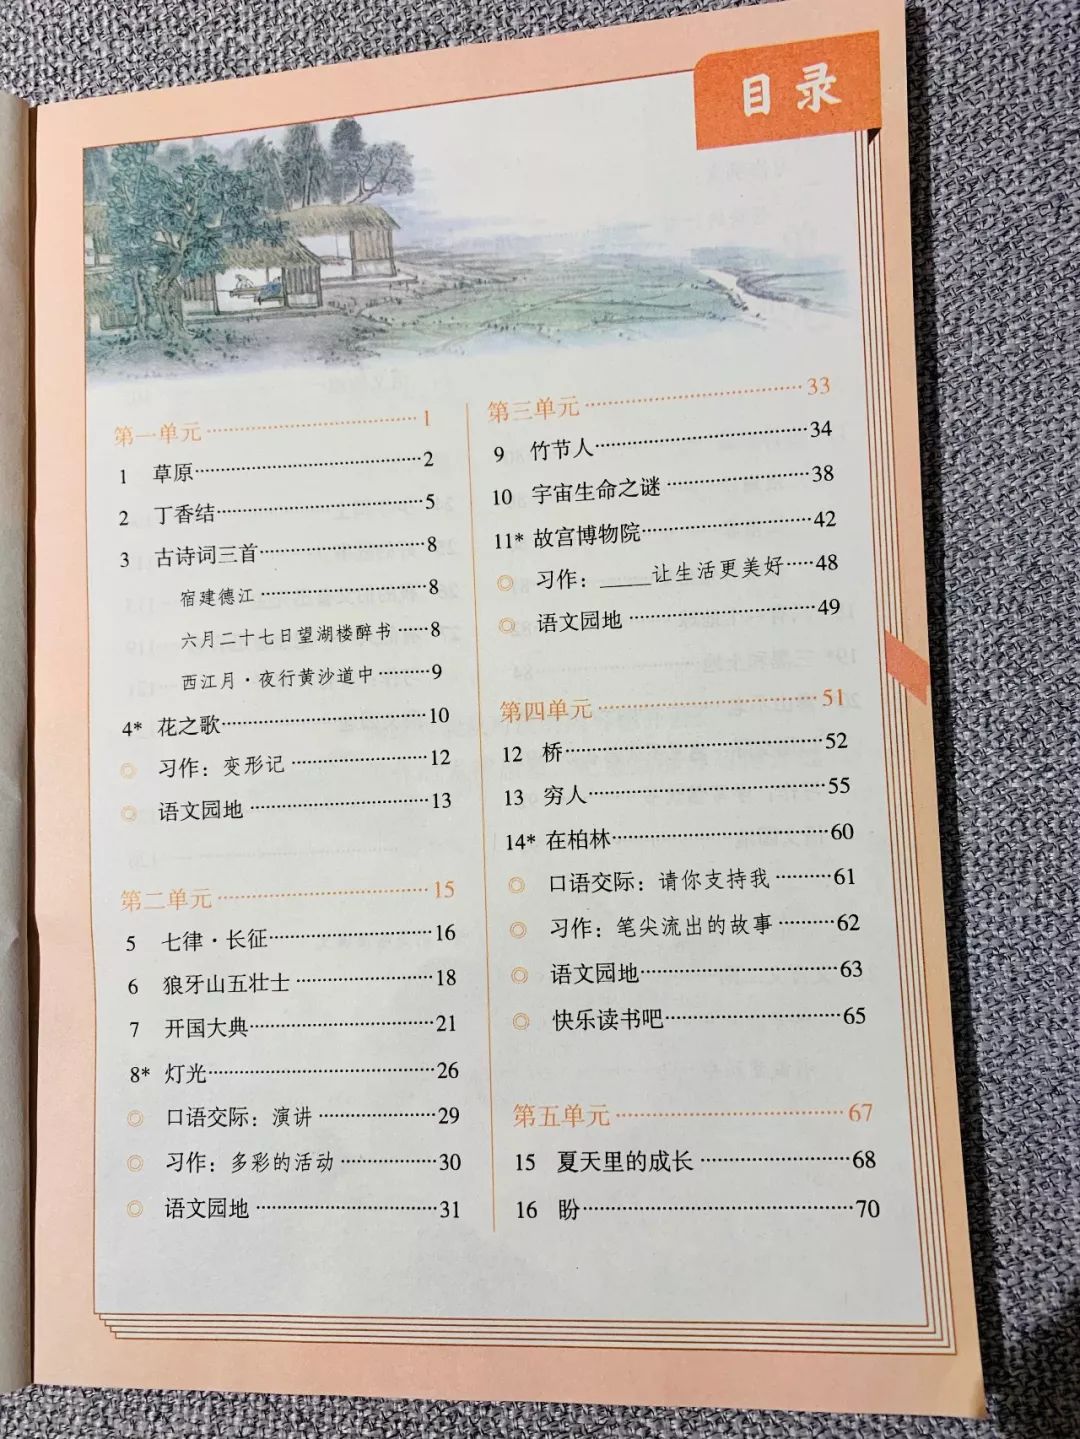 目录
第一单元 1
1 草原 2
2 丁香结 5
3 古诗词三首 8
宿建德江 8
六月二十七日望湖楼醉书 8
西江月·夜行黄沙道中 9
4* 花之歌 10
◎ 习作：变形记 12
◎ 语文园地 13
第二单元 15
5 七律·长征 16
6 狼牙山五壮士 18
7 开国大典 21
8* 灯光 26
◎ 口语交际：演讲 29
◎ 习作：多彩的活动 30
◎ 语文园地 31
第三单元 33
9 竹节人 34
10 宇宙生命之谜 38
11* 故宫博物院 42
◎ 习作：____让生活更美好 48
◎ 语文园地 49
第四单元 51
12 桥 52
13 穷人 55
14* 在柏林 60
◎ 口语交际：请你支持我 61
◎ 习作：笔尖流出的故事 62
◎ 语文园地 63
◎ 快乐读书吧 65
第五单元 67
15 夏天里的成长 68
16 盼 70